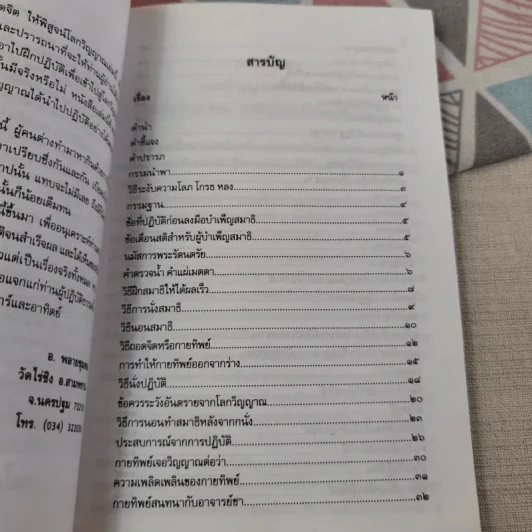 อดจิต ให้พิสูจน์โลกวิญญาณ
และปรารถนาที่จะให้
อาไปฝึกปฏิบัติเพื่อเข้าไปสู่
นมีจริงหรือไม่
ญญาณได้นำไปปฏิบัติ
นี้ ผู้คนต่างทำมาหากิน
าเปรียบซึ่งกันและกัน
าปนั้น แทบจะไม่มีเลย
นั้นก็น้อยเต็มทน
นี้ขึ้นมา เพื่ออนุเคราะห์
ติจนสำเร็จผล และได้
วแต่เป็นเรื่องจริงทั้งหมด
อแจกแก่ท่านผู้ปฏิบัติ
าร์และอาทิตย์
อ.
วัดไร่ขิง อ.สามพราน
จ.นครปฐม
โทร. (034)
สารบัญ
เรื่อง หน้า
คำนำ
คำชี้แจง
คำปรารภ
กรรมนำพา ๑
วิธีระงับความโลภ โกรธ หลง ๓
กรรมฐาน ๔
ข้อที่ปฏิบัติก่อนลงมือบำเพ็ญสมาธิ ๕
ข้อเตือนสติสำหรับผู้บำเพ็ญสมาธิ ๕
นมัสการพระรัตนตรัย ๖
คำตรวจน้ำ คำแผ่เมตตา ๖
วิธีฝึกสมาธิให้ได้ผลเร็ว ๗
วิธีการนั่งสมาธิ ๙
วิธีนอนสมาธิ ๑๐
วิธีถอดจิตหรือกายทิพย์ ๑๒
การทำให้กายทิพย์ออกจากร่าง ๑๕
วิธีนั่งปฏิบัติ ๑๘
ข้อควรระวังอันตรายจากโลกวิญญาณ ๒๐
วิธีการนอนทำสมาธิหลังจากนั่ง ๒๓
ประสบการณ์จากการปฏิบัติ ๒๖
กายทิพย์เจอวิญญาณต่อว่า ๓๐
ความเพลิดเพลินของกายทิพย์ ๓๑
กายทิพย์สนทนากับอาจารย์ชา ๓๒